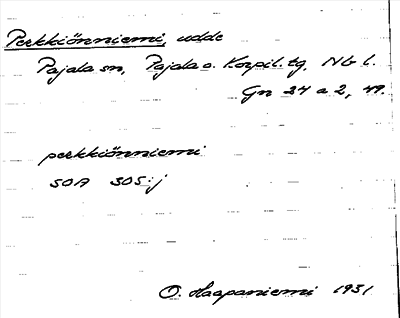 Perkkiönniemi, udde
Pajala sn, Pajala o. Korpil. tg. Nb l.
Gn 24 a 2, 49.
perkkiönniemi
SOA 305:j
O. Haapaniemi 1931